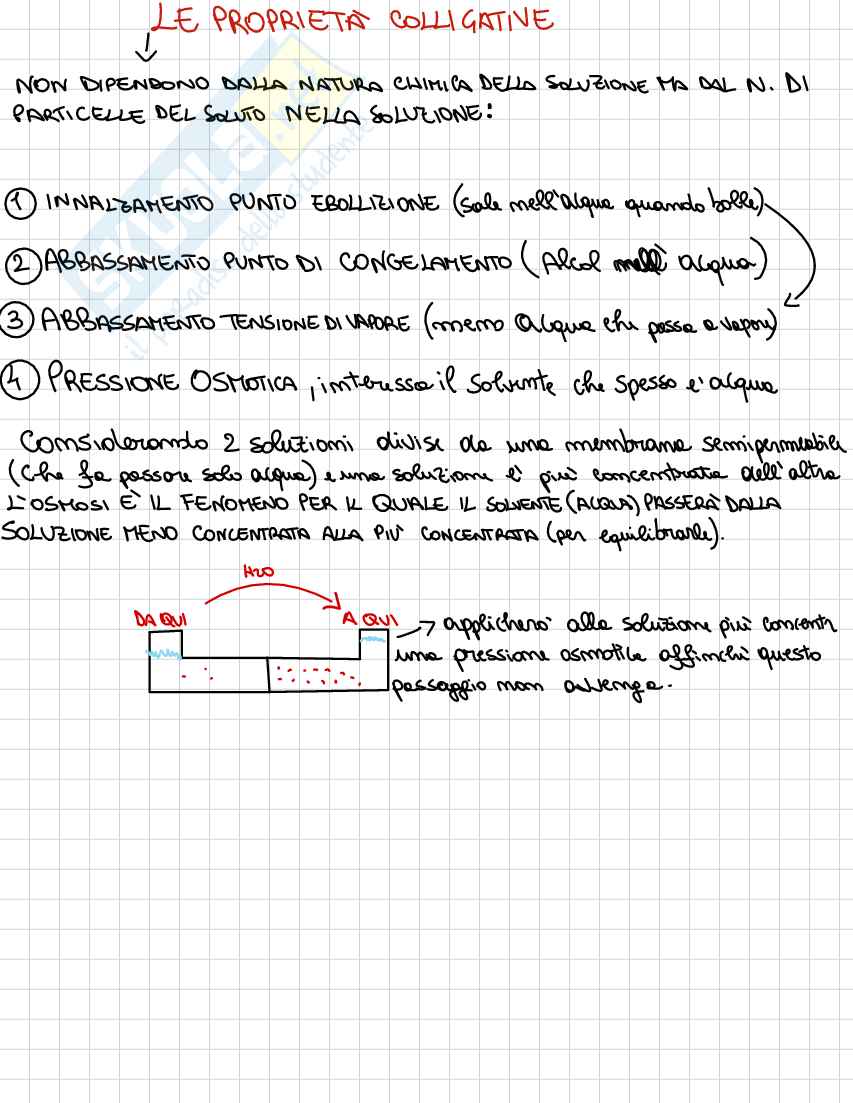 LE PROPRIETÀ COLLIGATIVE
NON DIPENDONO DALLA NATURA CHIMICA DELLA SOLUZIONE MA DAL N. DI
PARTICELLE DEL SOLUTO NELLA SOLUZIONE:
1 INNALZAMENTO PUNTO EBOLLIZIONE (sale nell'acqua quando bolle)
2 ABBASSAMENTO PUNTO DI CONGELAMENTO (Alcol nell' acqua)
3 ABBASSAMENTO TENSIONE DI VAPORE (meno acqua che passa a vapore)
4 PRESSIONE OSMOTICA, interessa il solvente che spesso e' acqua
Considerando 2 soluzioni divise da una membrana semipermeabile
(che fa passare solo acqua) e una soluzione e' più concentrata dell'altra
L'OSMOSI È IL FENOMENO PER IL QUALE IL SOLVENTE (ACQUA) PASSERÀ DALLA
SOLUZIONE MENO CONCENTRATA ALLA PIÙ CONCENTRATA (per equilibrarle).
H2O
DA QUI
A QUI
applicherò alla soluzione più concentr
una pressione osmotica affinché questo
passaggio non avvenga.
SKUOLA.net
il paradiso dello studente